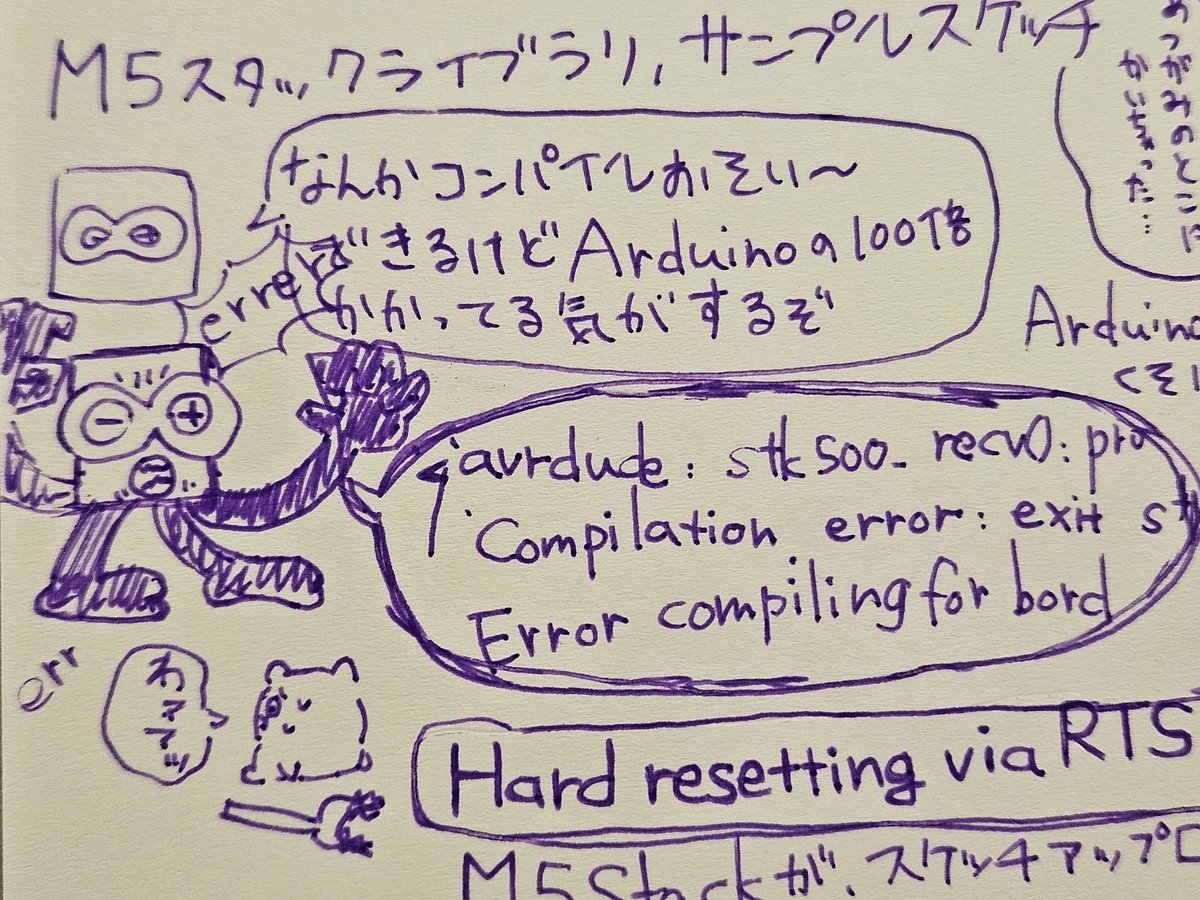 M5スタックライブラリ,サンプルスケッチ
なんかコンパイルおそい〜
できるけどArduinoの100倍
かかってる気がするぞ
あつがみのとこに
かいちゃった…
error
Arduino
くそ
avrdude: stk500_recv(): pro
Compilation error: exit st
Error compiling for bord
err
わァァッ
Hard resetting via RTS
M5Stackが、スケッチアップロ